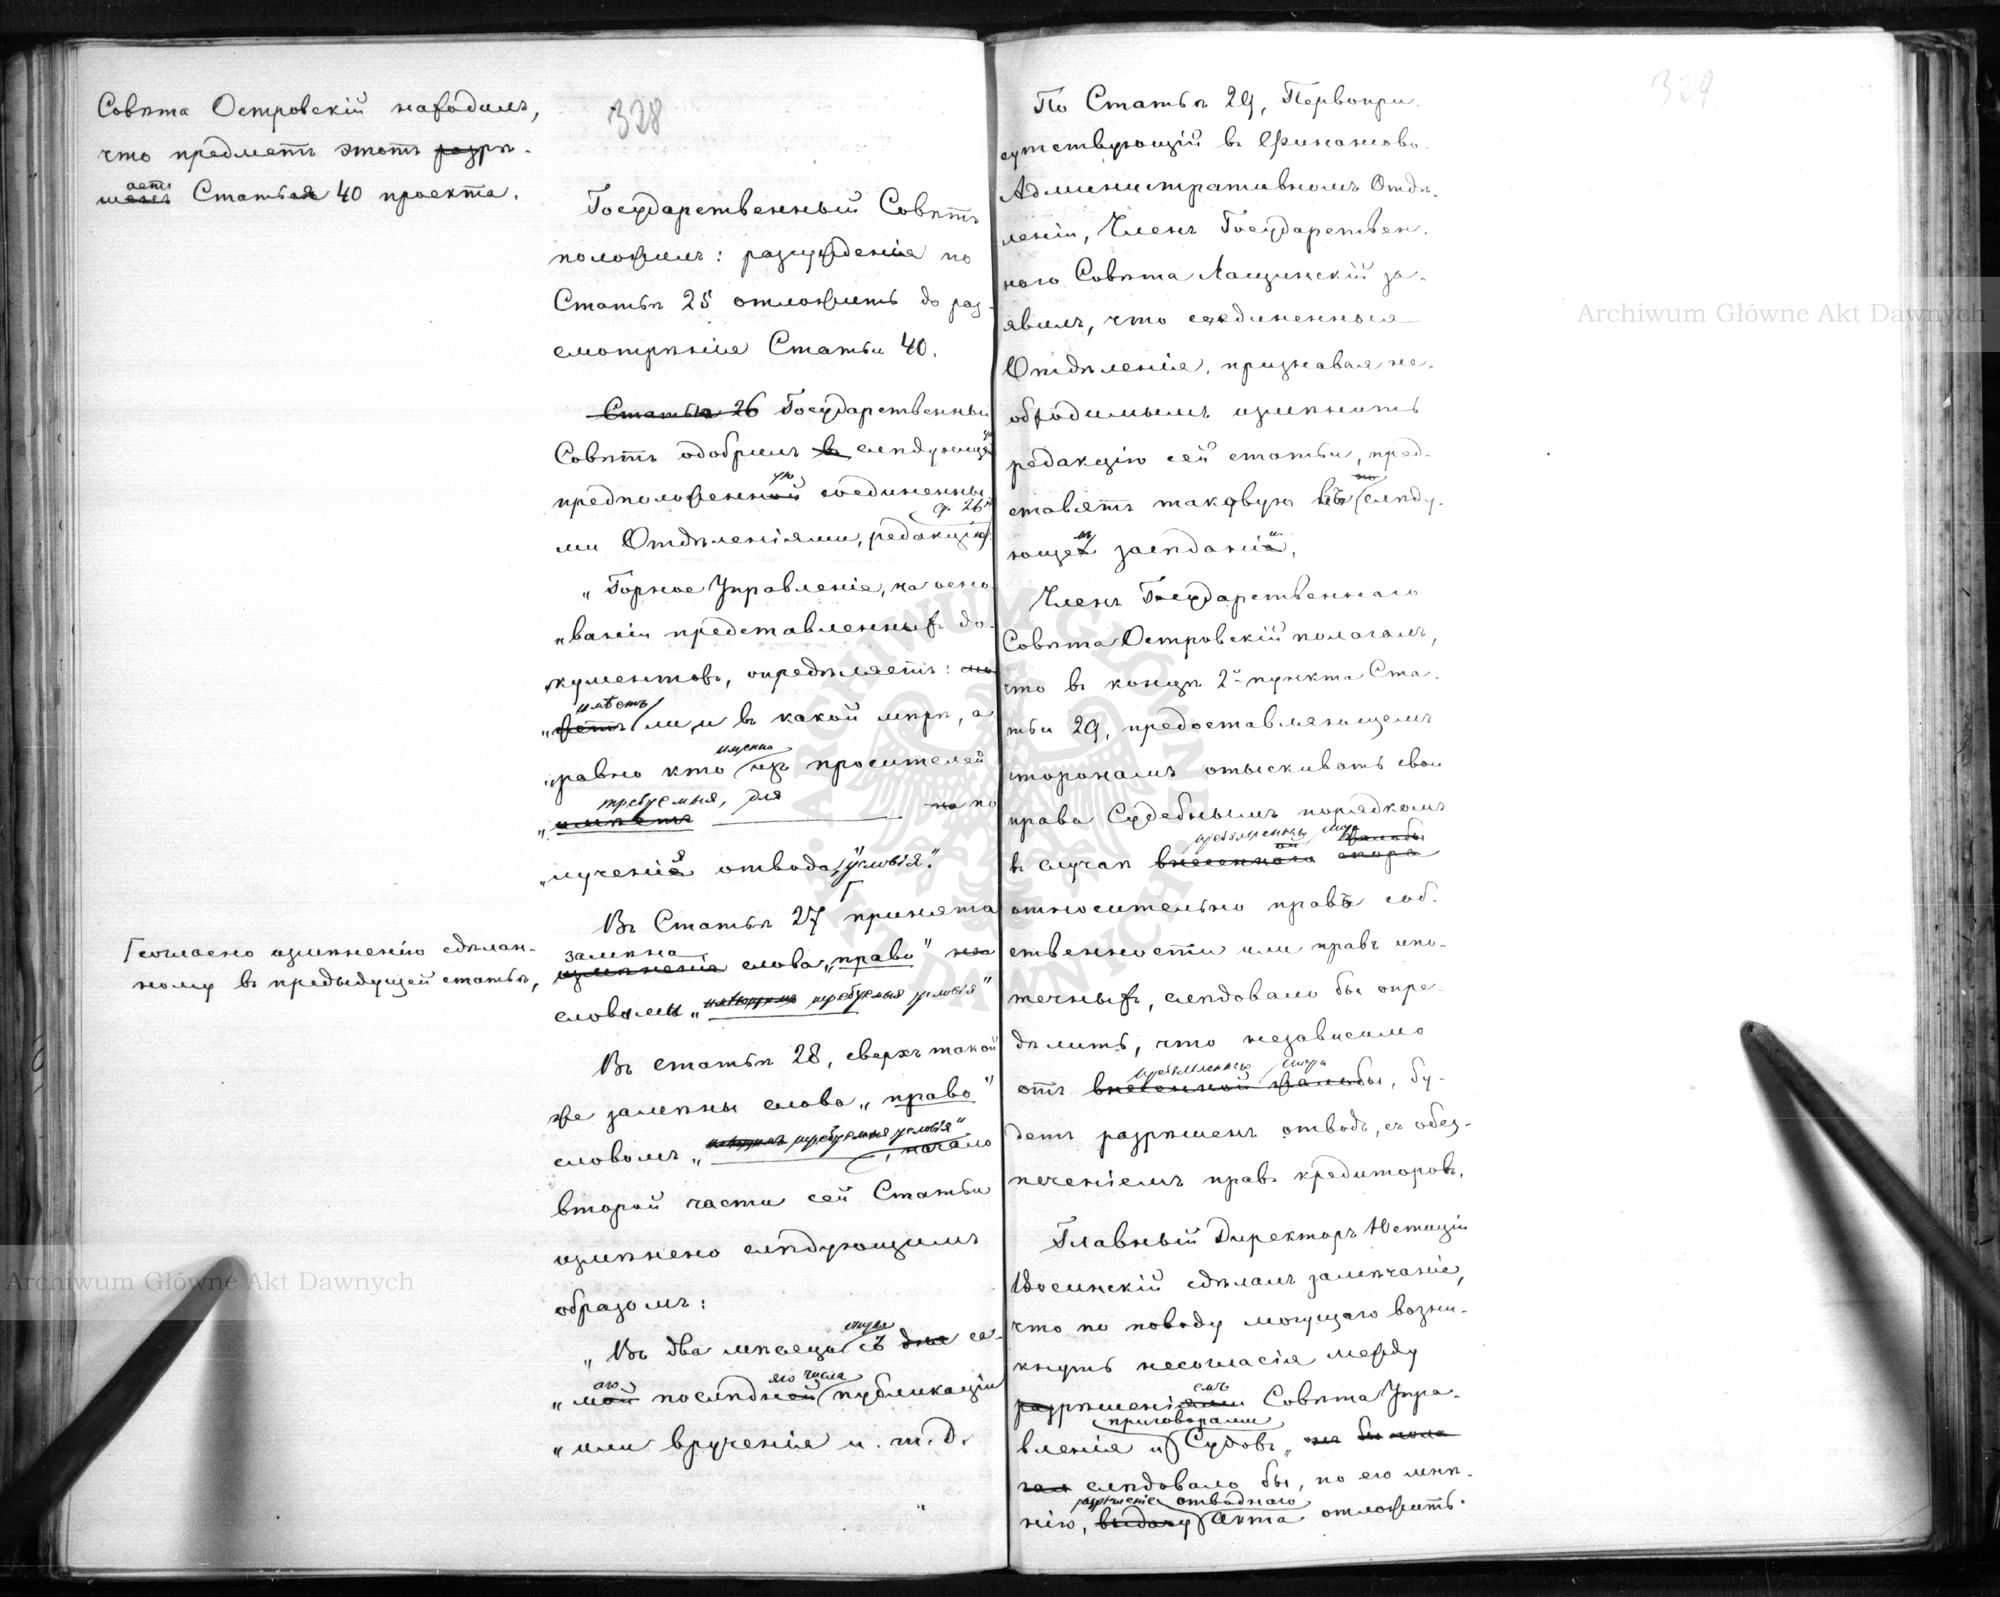 328
Совѣта Островскій находилъ,
что предметъ этотъ разрѣ-
шаетъ Статья 40 проекта.
Государственный Совѣтъ
положилъ: разсужденіе по
Статьѣ 25 отложить до раз-
смотрѣнія Статьи 40.
Статьѣ 26 Государственный
Совѣтъ одобрилъ въ слѣдующую
предположенную соединенны-
ми Отдѣленіями, редакцію
с. 26й
„Горное Управленіе, на осно-
„ваніи представленныхъ до-
„кументовъ, опредѣляетъ:
„имѣетъ ли, и въ какой мѣрѣ, а
„равно кто именно изъ просителей
„требуемыя, для по
„лученія отвода, условія".
Въ Статьѣ 27 принята
Согласно измѣненію сдѣлан-
ному въ предыдущей статьѣ,
замѣна слова „право"
словами „требуемыя условія"
Въ статьѣ 28, сверхъ такой
же замѣны слова „право"
словомъ „требуемыя условія"
, начало
второй части сей Статьи
измѣнено слѣдующимъ
образомъ:
„Въ два мѣсяца съ дня са-
„маго послѣдняго числа публикаціи
„или врученія и. т. д.
329
По Статьѣ 29, Первопри-
сутствующій въ Финансово-
Административномъ Отдѣ-
леніи, Членъ Государствен-
наго Совѣта Лащинскій за-
явилъ, что соединенныя
Отдѣленія, признавая не-
обходимымъ измѣнить
редакцію сей статьи, пред-
ставятъ таковую въ слѣду-
ющемъ засѣданіи.
Членъ Государственнаго
Совѣта Островскій полагалъ,
что въ концѣ 2го пункта Ста-
тьи 29, предоставляющемъ
сторонамъ отыскивать свои
права Судебнымъ порядкомъ
предъявленнаго спора жалобы
въ случаѣ внесеннаго спора
относительно правъ соб-
ственности или правъ ипо-
течныхъ, слѣдовало бы опре-
дѣлить, что независимо
предъявленнаго спора
отъ внесенной жалобы, бу-
детъ разрѣшенъ отводъ, съ обез-
печеніемъ правъ кредиторовъ.
Главный Директоръ Юстиціи
Восинскій сдѣлалъ замѣчаніе,
что по поводу могущаго возни-
кнуть несогласія между
разрѣшеніемъ Совѣта Упра-
приговорами
вленія и Судовъ,
слѣдовало бы, по его мнѣ-
разрѣшеніе отводнаго
нію, выдачу Акта отложить.
Archiwum Główne Akt Dawnych
Archiwum Główne Akt Dawnych
ARCHIWUM GŁÓWNE AKT DAWNYCH